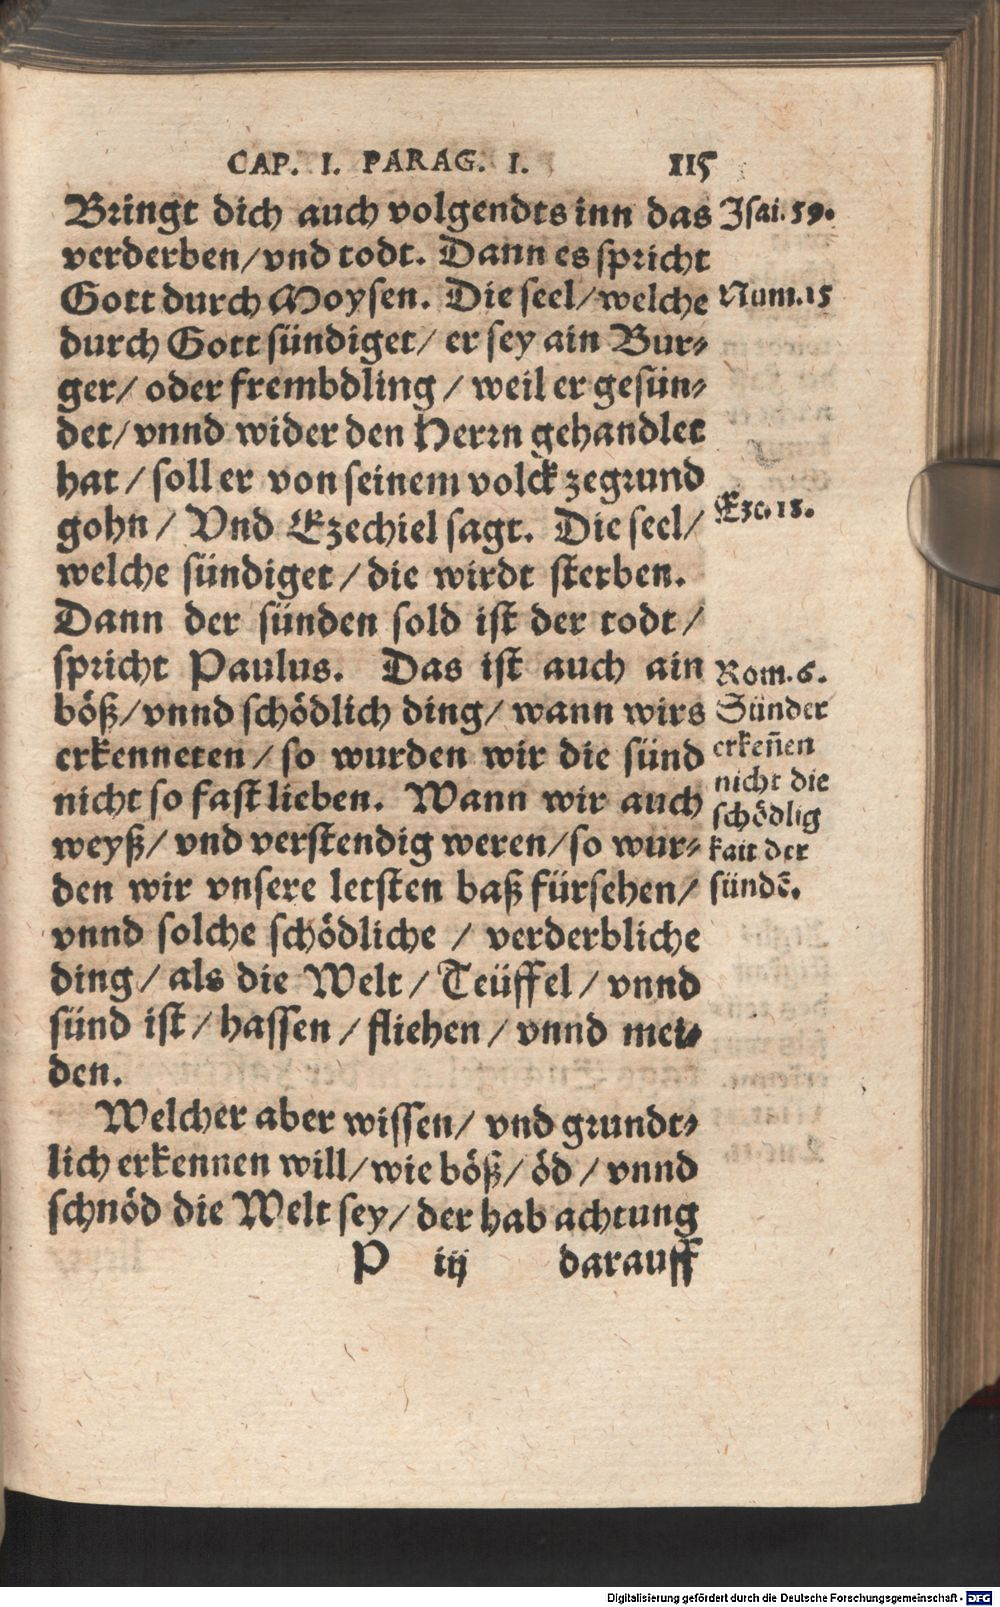 CAP. I. PARAG. I. 115
Bringt dich auch volgendts inn das
verderben/vnd todt. Dann es spricht
Gott durch Moysen. Die seel/welche
durch Gott sündiget/ er sey ain Bur⸗
ger/ oder frembdling / weil er gesün⸗
det/vnnd wider den Herrn gehandlet
hat / soll er von seinem volck zegrund
gohn / Vnd Ezechiel sagt. Die seel/
welche sündiget / die wirdt sterben.
Dann der sünden sold ist der todt /
spricht Paulus. Das ist auch ain
böß/vnnd schödlich ding/ wann wirs
erkenneten / so wurden wir die sünd
nicht so fast lieben. Wann wir auch
weyß/ vnd verstendig weren/so wur⸗
den wir vnsere letsten baß fürsehen/
vnnd solche schödliche / verderbliche
ding / als die Welt / Teüffel / vnnd
sünd ist / hassen / fliehen / vnnd mei⸗
den.
Welcher aber wissen/ vnd grundt⸗
lich erkennen will/wie böß/ öd / vnnd
schnöd die Welt sey/ der hab achtung
P iij darauff
Isai. 59.
Num. 15
Ezc. 18.
Rom. 6.
Sünder
erkeñen
nicht die
schödlig
kait der
sündẽ.
Digitalisierung gefördert durch die Deutsche Forschungsgemeinschaft - DFG